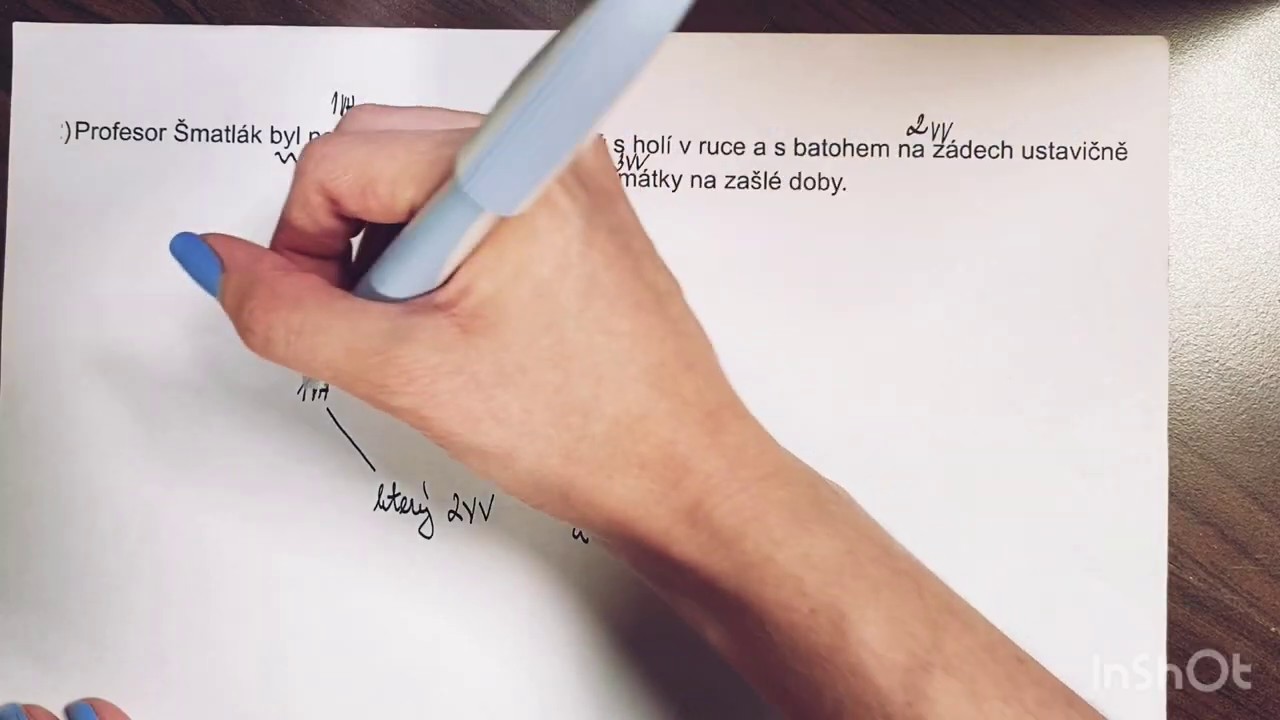 1VH
2VV
:)Profesor Šmatlák byl s holí v ruce a s batohem na zádech ustavičně
3VV
mátky na zašlé doby.
1VH
který 2VV
a
InShOt